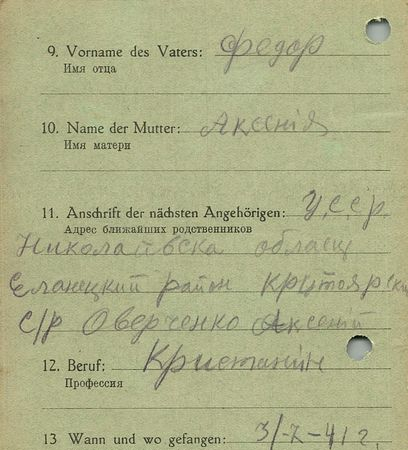 9. Vorname des Vaters: Федор
Имя отца
10. Name der Mutter: Аксенія
Имя матери
11. Anschrift der nächsten Angehörigen: У.С.С.Р.
Адрес ближайших родственников
Николаївска область
Еланецкий район
с/р Оверченко Аксеній
12. Beruf: Кристанин
Профессия
13 Wann und wo gefangen: